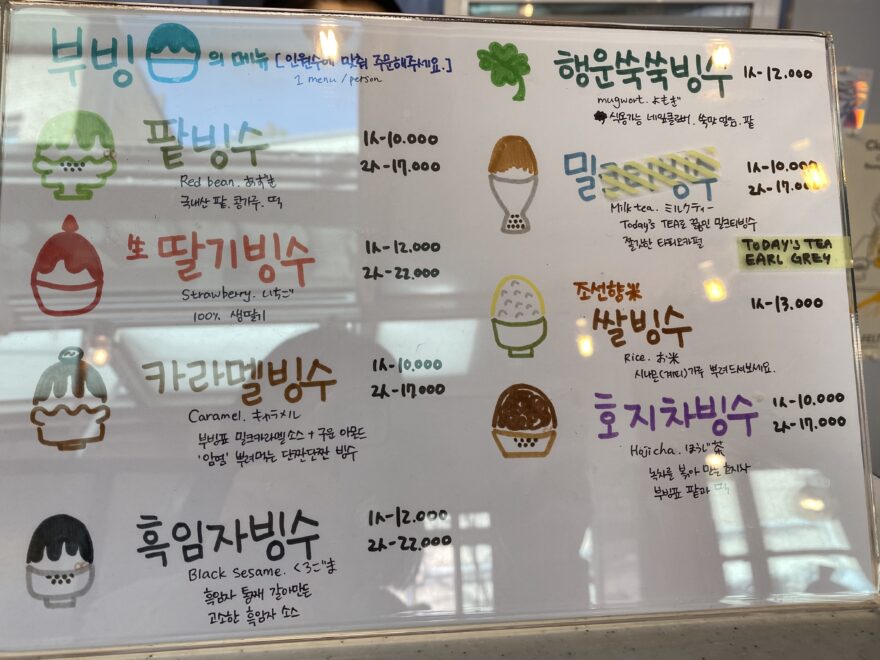 부빙 의 메뉴 [인원수에 맞춰 주문해주세요.]
1 menu / person
팥빙수
1人-10.000
2人-17.000
Red bean. あずき
국내산 팥. 콩가루. 떡
生 딸기빙수
1人-12.000
2人-22.000
Strawberry. いちご
100% 생딸기
카라멜빙수
1人-10.000
2人-17.000
Caramel. キャラメル
부빙표 밀크카라멜소스 + 구운 아몬드
뿌려먹는 단짠단짠 빙수
흑임자빙수
1人-12.000
2人-22.000
Black Sesame. くろごま
흑임자 통째 갈아만든
고소한 흑임자 소스
행운쑥쑥빙수 1人-12.000
mugwort. よもぎ
식용가능 네잎클로버. 쑥맛 팥
밀크티빙수
1人-10.000
2人-17.000
Milk tea. ミルクティー
Today's TEA로 끓인 밀크티빙수
쫄깃한 타피오카펄
TODAY'S TEA
EARL GREY
조선향米
쌀빙수
1人-13.000
Rice. お米
시나몬(계피)가루 뿌려드셔보세요.
호지차빙수
1人-10.000
2人-17.000
Hojicha. ほうじ茶
녹차를 볶아 만든 호지차
부빙표 팥과 떡